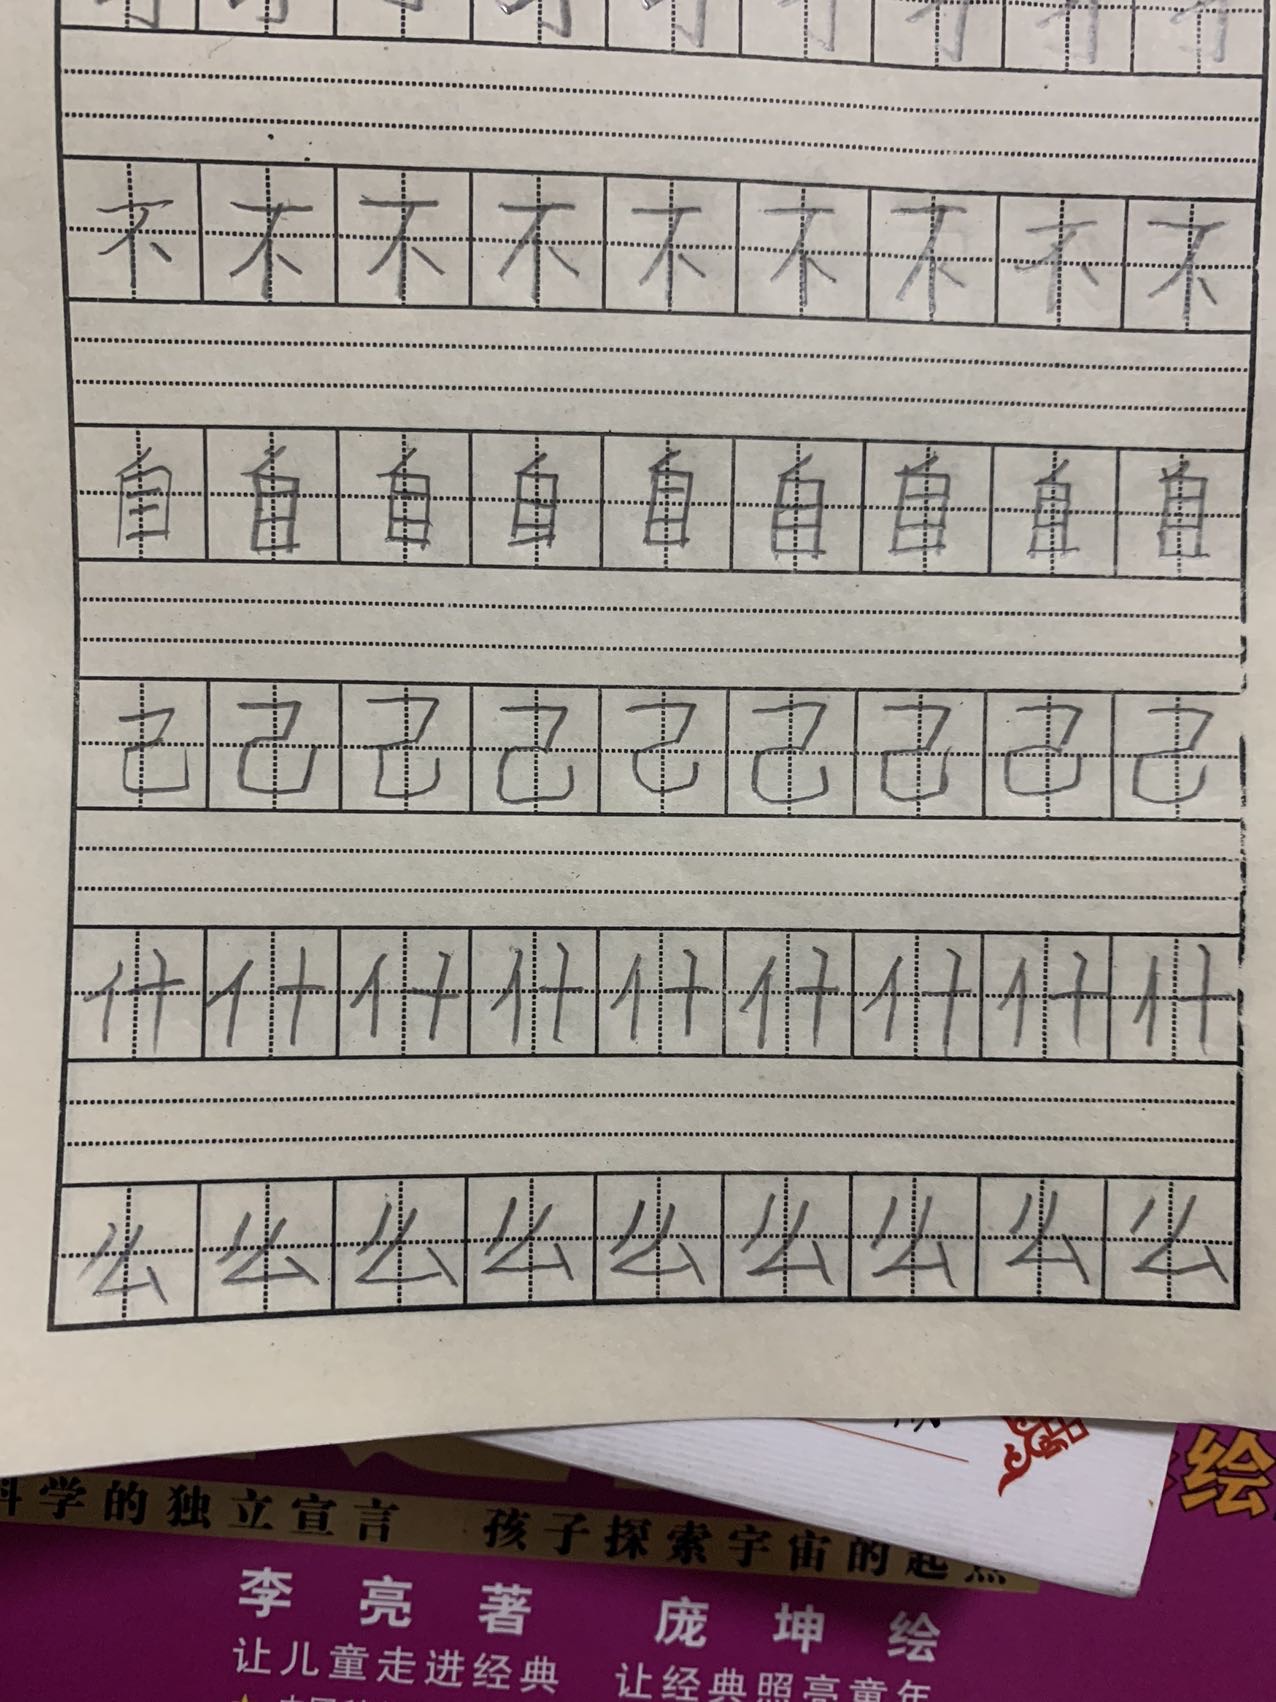 不不不不不不不不不
自自自自自自自自自
己己己己己己己己己
什什什什什什什什什
么么么么么么么么么
绘
科学的独立宣言 孩子探索宇宙的起点
李亮著 庞坤绘
让儿童走进经典 让经典照亮童年